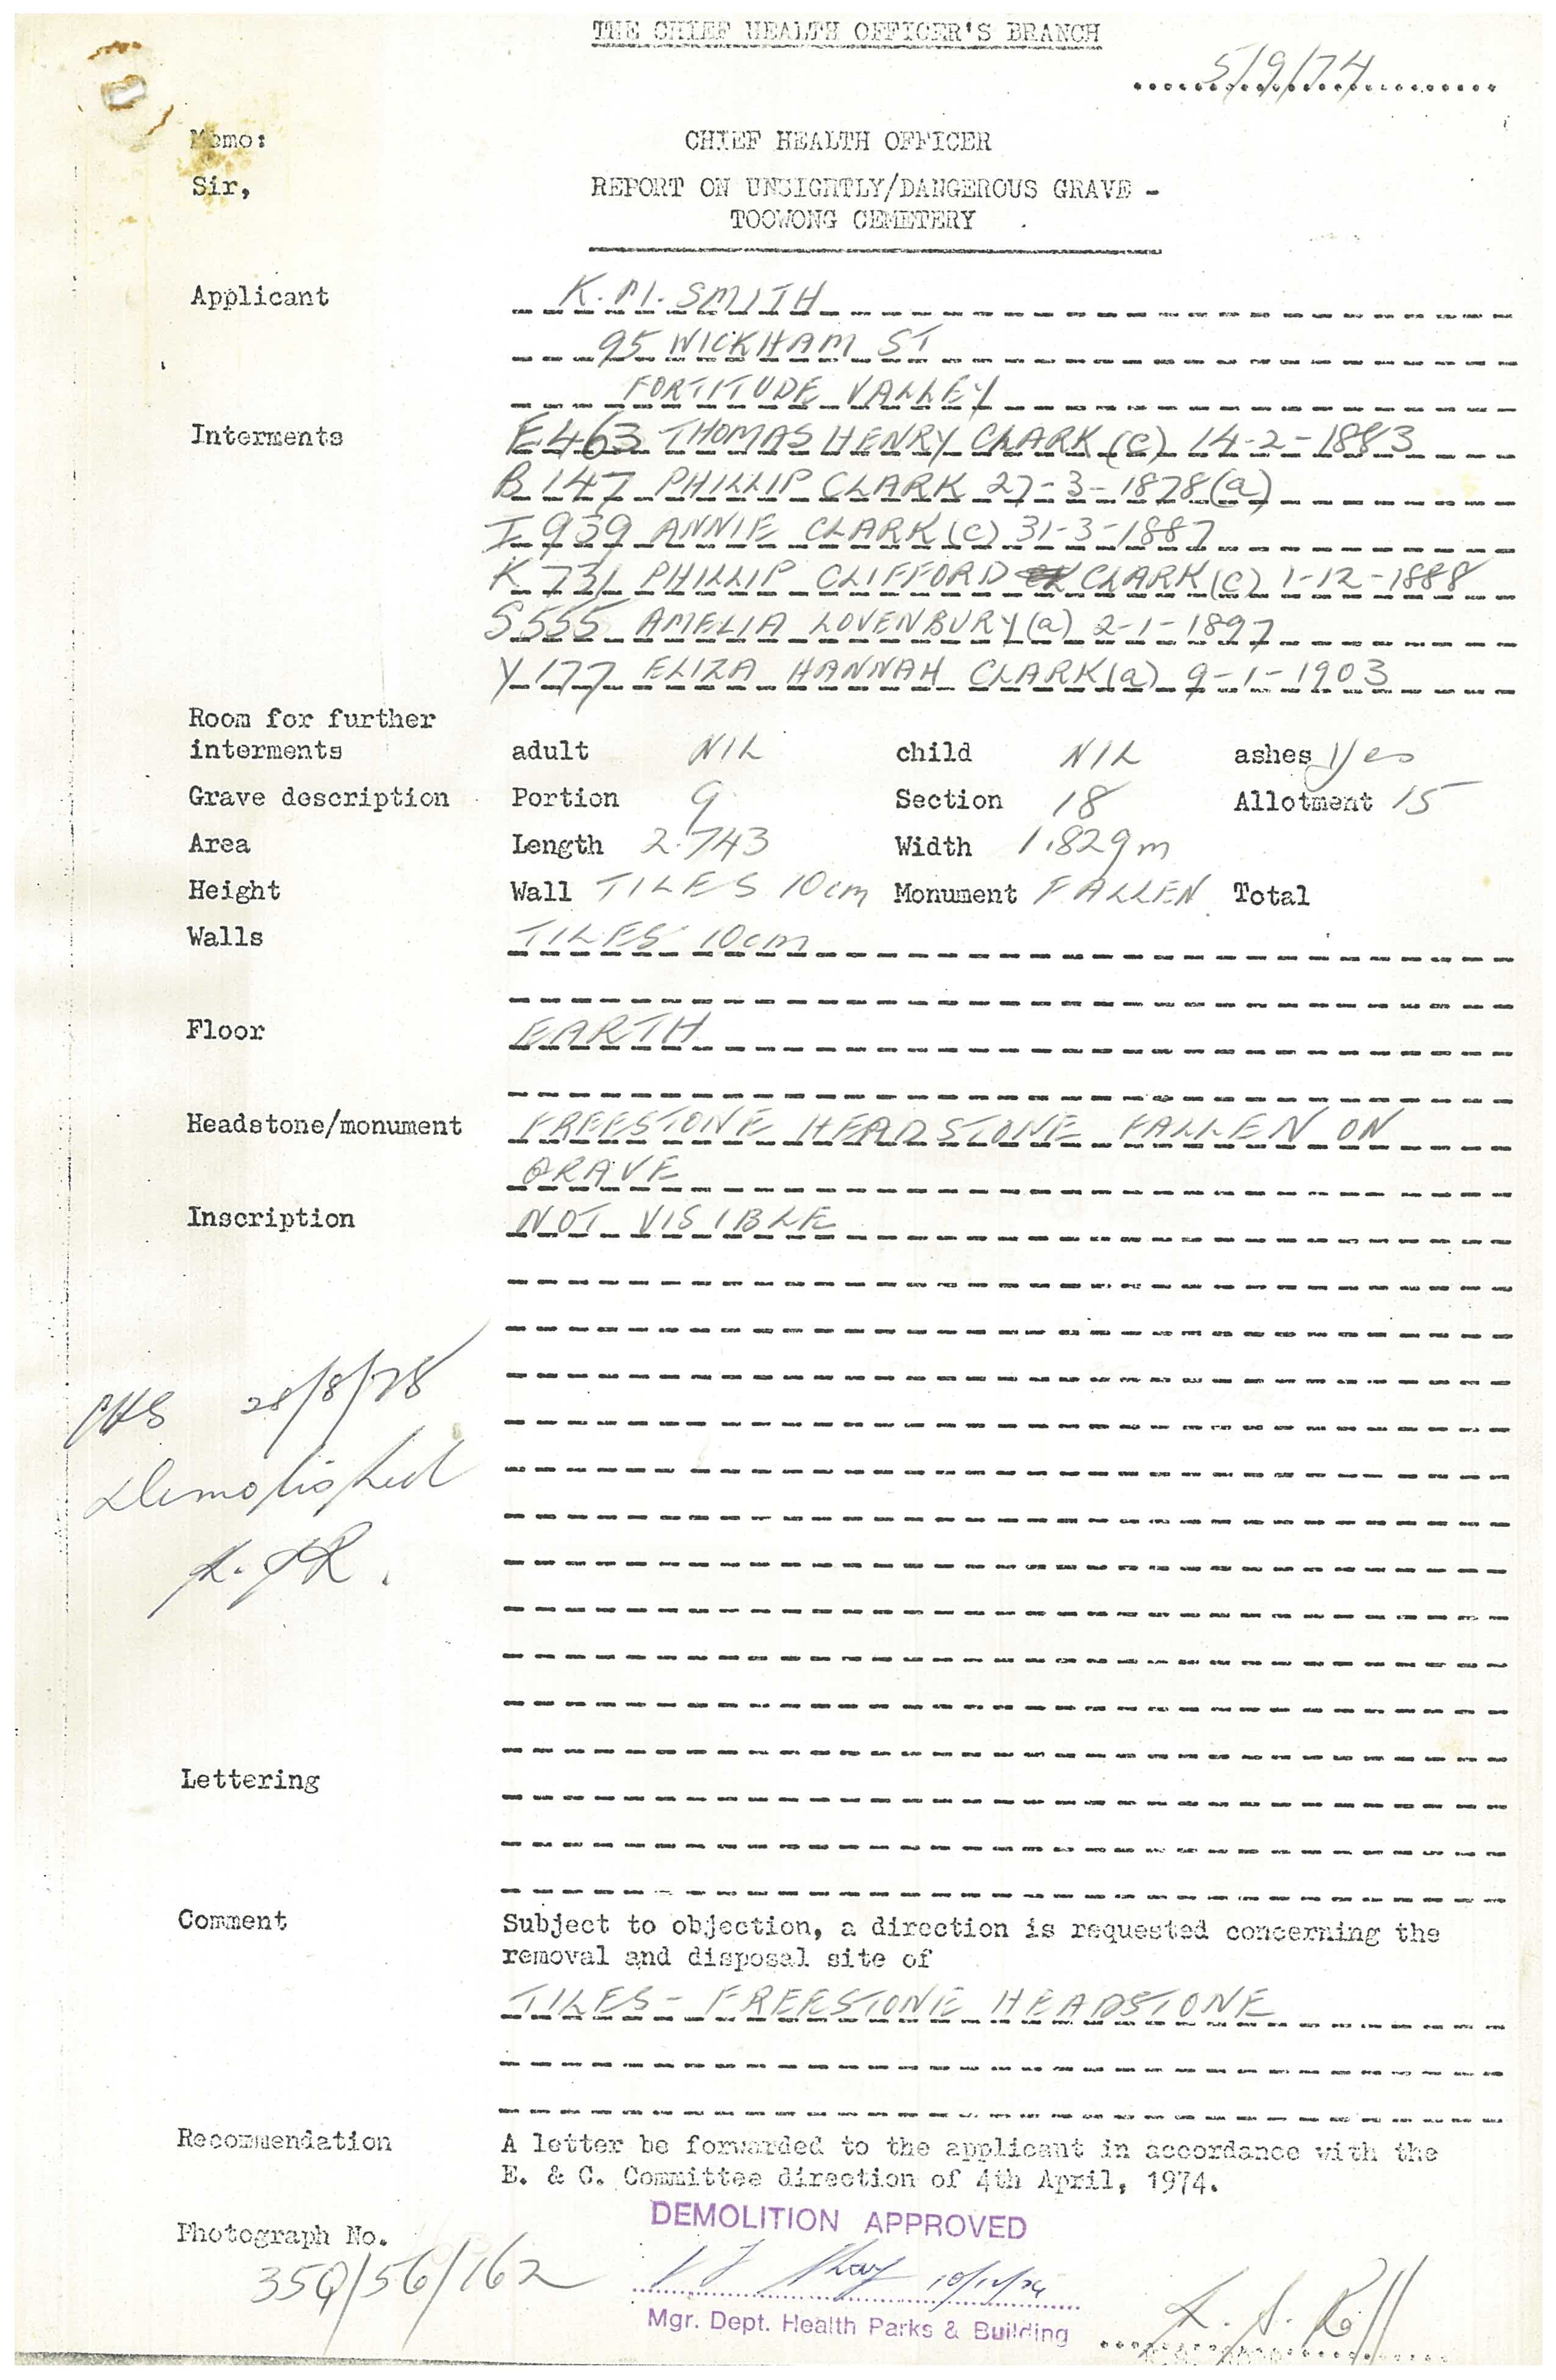 THE CHIEF HEALTH OFFICER'S BRANCH
5/9/74
Memo:
CHIEF HEALTH OFFICER
Sir,
REPORT ON UNSIGHTLY/DANGEROUS GRAVE -
TOOWONG CEMETERY
Applicant K.M. SMITH
95 WICKHAM ST
FORTITUDE VALLEY
Interments E463 THOMAS HENRY CLARK (c) 14-2-1883
B 147 PHILLIP CLARK 27-3-1878 (a)
I 939 ANNIE CLARK (c) 31-3-1887
K 731 PHILLIP CLIFFORD CLARK (c) 1-12-1888
S555 AMELIA LOVENBURY (a) 2-1-1897
Y 177 ELIZA HANNAH CLARK (a) 9-1-1903
Room for further
interments adult NIL child NIL ashes Yes
Grave description Portion 9 Section 18 Allotment 15
Area Length 2.743 Width 1.829m
Height Wall TILES 10cm Monument FALLEN Total
Walls TILES 10cm
Floor EARTH
Headstone/monument FREESTONE HEADSTONE FALLEN ON
GRAVE
Inscription NOT VISIBLE
28/8/78
Demolished
Lettering
Comment Subject to objection, a direction is requested concerning the
removal and disposal site of
TILES - FREESTONE HEADSTONE
Recommendation A letter be forwarded to the applicant in accordance with the
E. & C. Committee direction of 4th April, 1974.
DEMOLITION APPROVED
Photograph No.
35Q/56/162
Mgr. Dept. Health Parks & Building